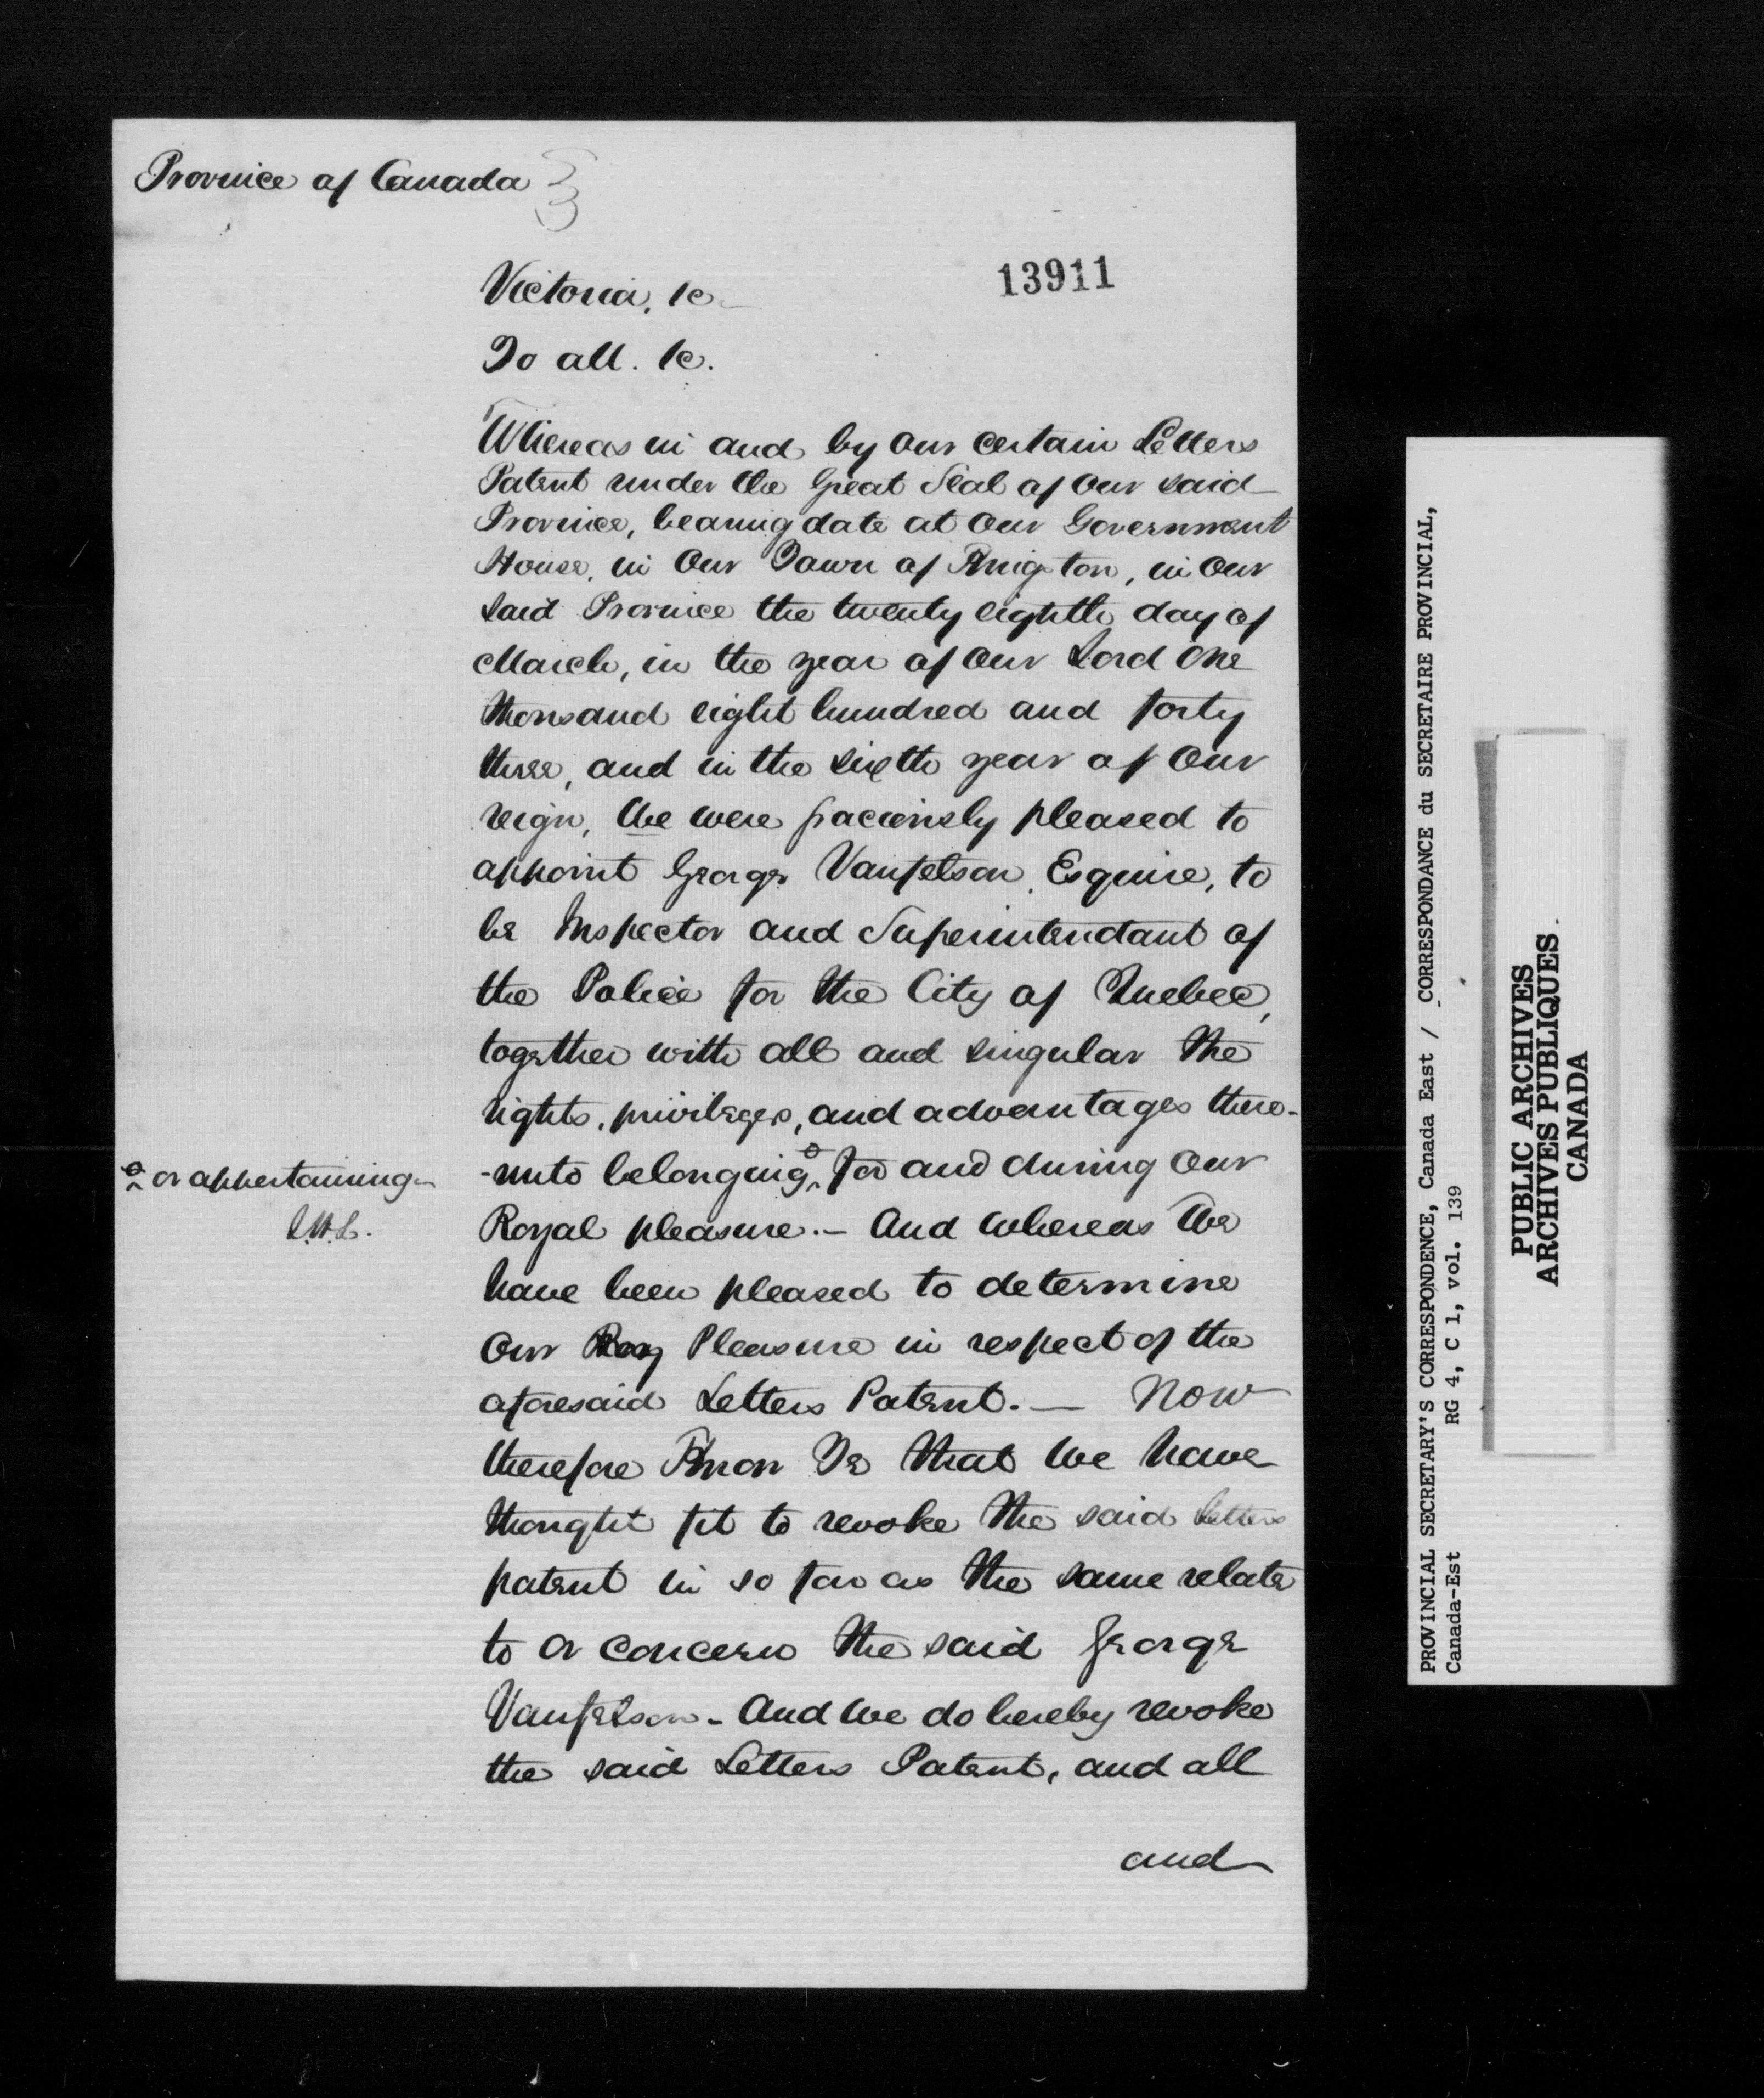 Province of Canada
13911
Victoria, &c
To all. &c.
Whereas in and by Our certain Letters
Patent under the Great Seal of Our said
Province, bearing date at Our Government
House, in Our Town of Kingston, in Our
said Province the twenty eighth day of
March, in the year of Our Lord One
thousand eight hundred and forty
three, and in the sixth year of Our
reign, We were graciously pleased to
appoint George Vanfelson, Esquire, to
be Inspector and Superintendant of
the Police for the City of Quebec,
together with all and singular the
rights, privileges, and advantages there-
-unto belonging, for and during Our
or appertaining
Royal pleasure. — And Whereas We
have been pleased to determine
Our Roy Pleasure in respect of the
aforesaid Letters Patent. — Now
therefore Know Ye that We have
thought fit to revoke the said Letters
patent in so far as the same relate
to or concern the said George
Vanfelson - And We do hereby revoke
the said Letters Patent, and all
and
PROVINCIAL SECRETARY'S CORRESPONDENCE, Canada East / CORRESPONDANCE du SECRETAIRE PROVINCIAL,
Canada-Est RG 4, C 1, vol. 139
PUBLIC ARCHIVES
ARCHIVES PUBLIQUES
CANADA